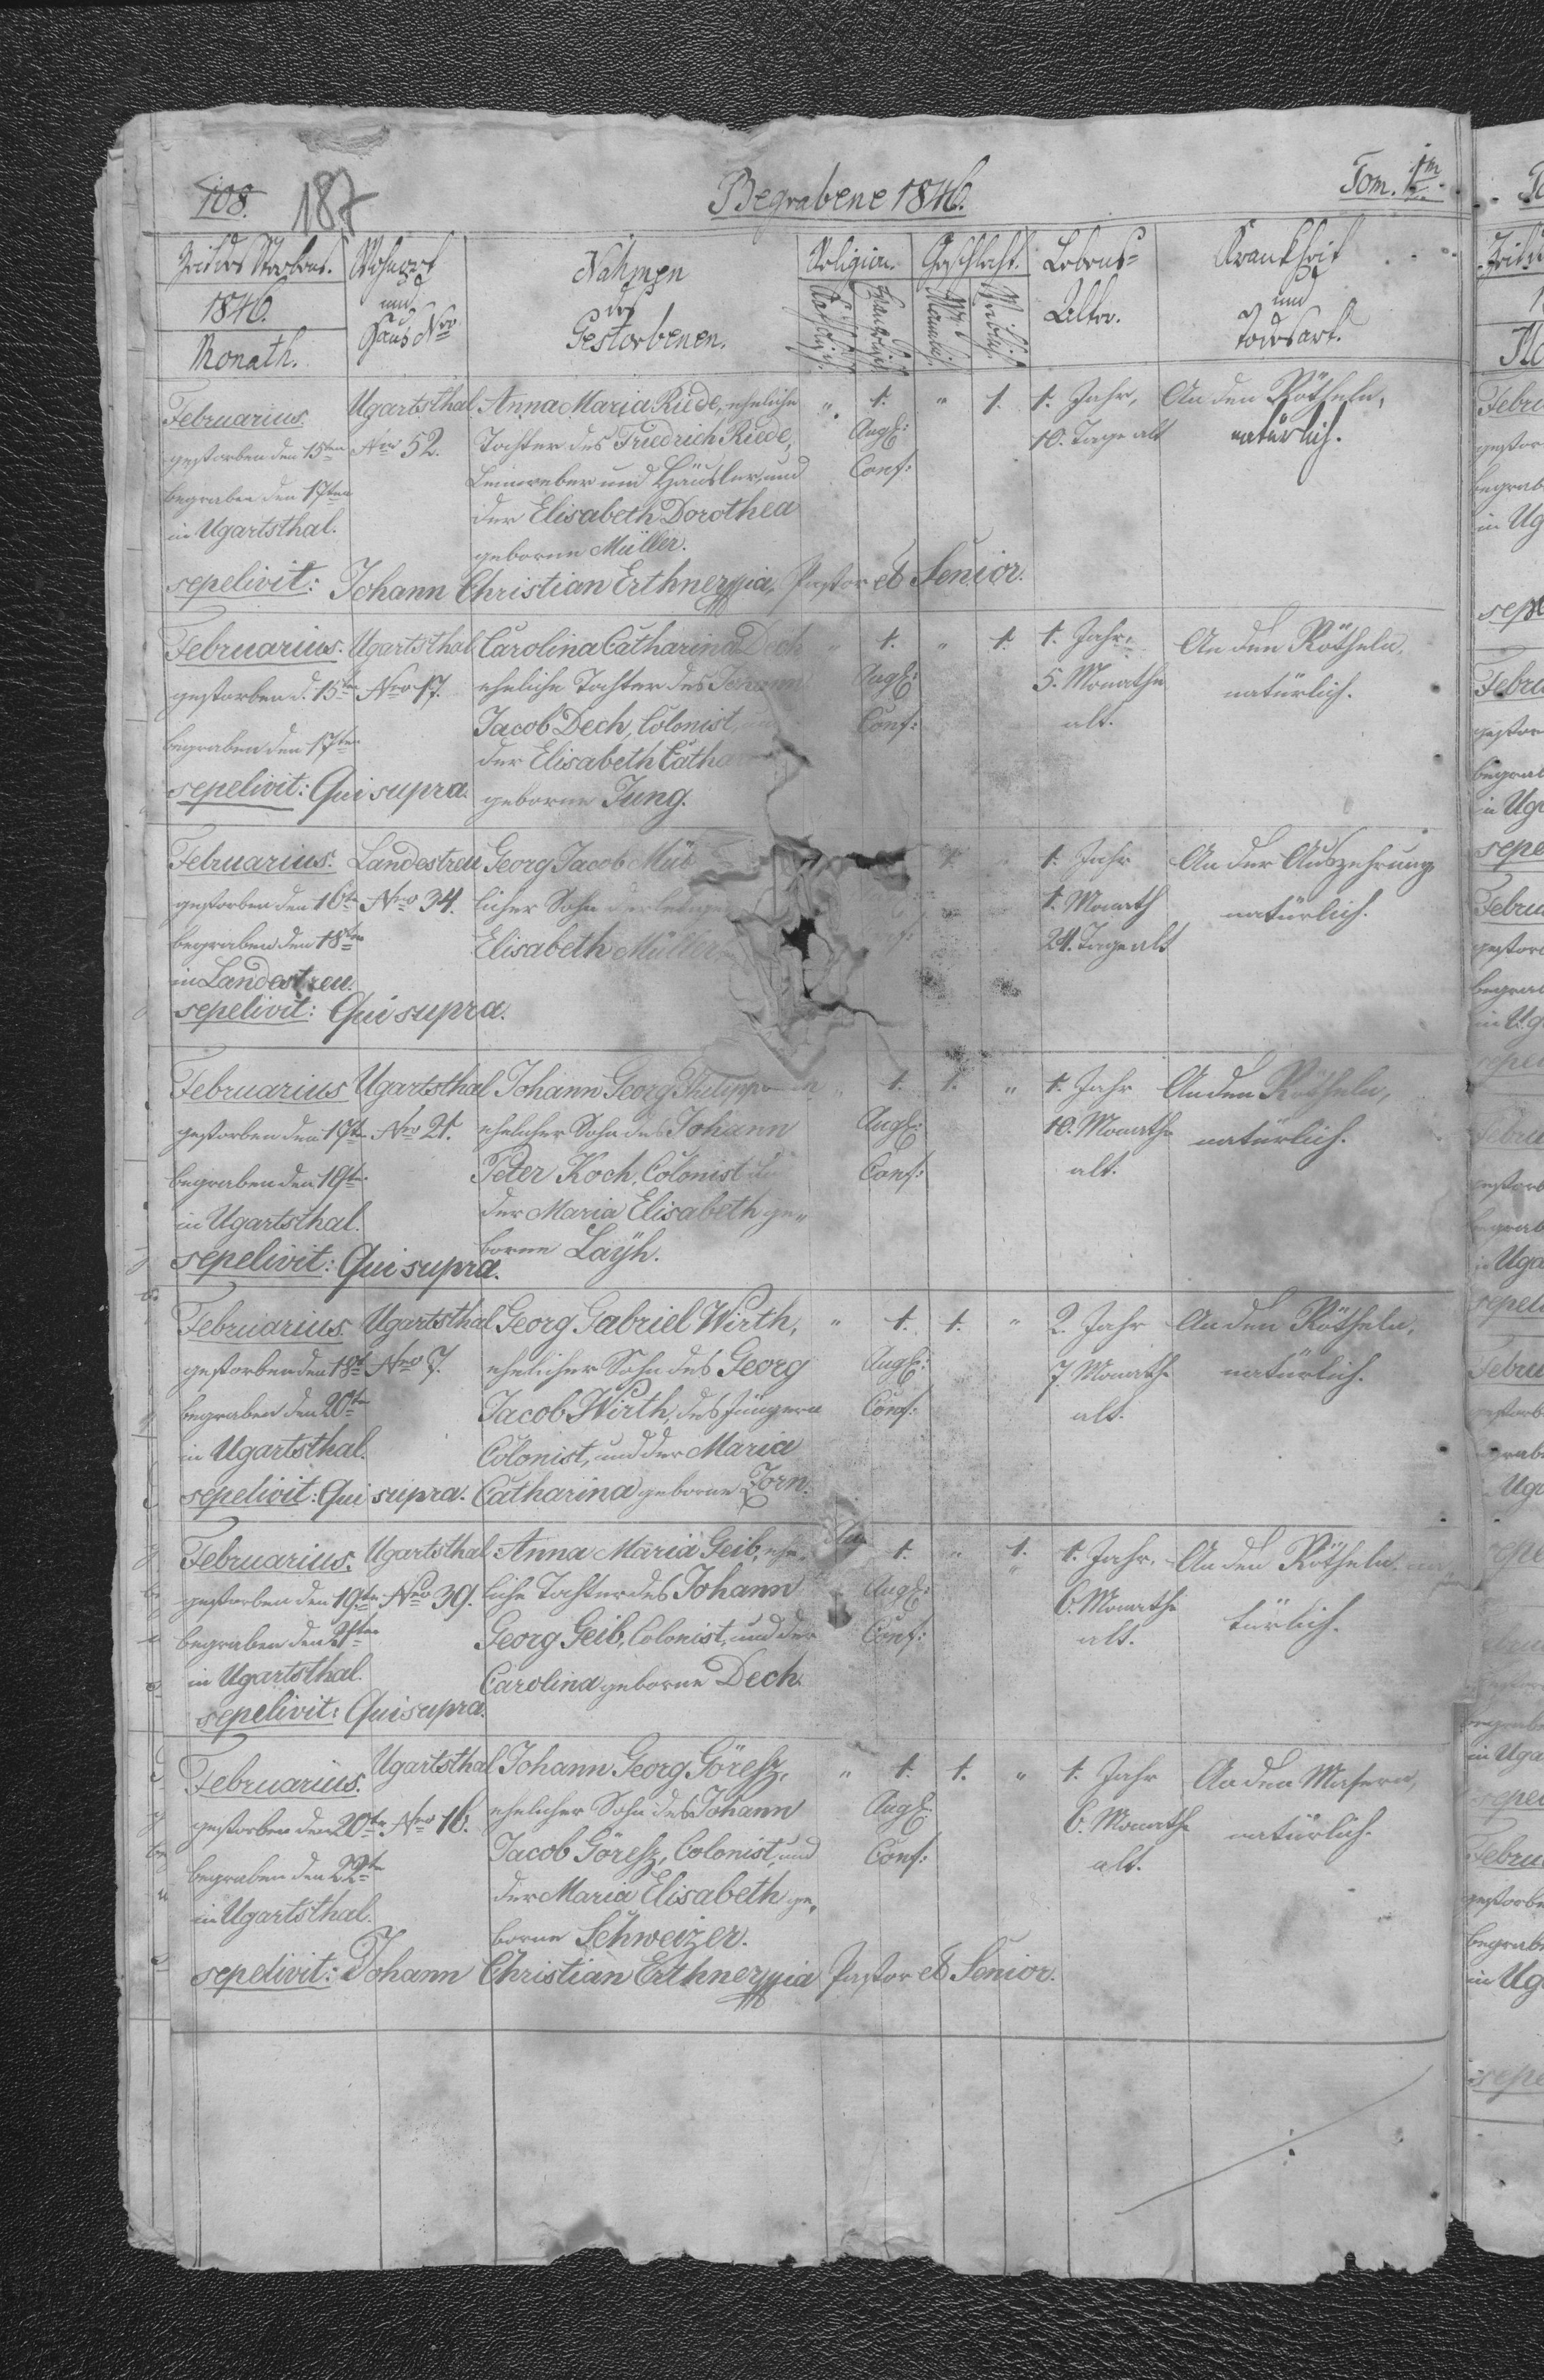 108. 187 Begrabene 1846. Tom. 1m
Zeit des Sterbens. Wohnort Nahmen Religion. Geschlecht. Lebens= Krankheit
1846. und des Katholisch. Evangelisch Männlich. Weiblich. Alter. und
Monath. Haus Nro Gestorbenen. Todesart.
Februarius. Ugartsthal Anna Maria Riede, eheliche " 1. " 1. 1. Jahr, An den Rötheln,
gestorben den 15ten Nro 52. Tochter des Friedrich Riede, Augs: 10. Tage alt natürlich.
begraben den 17ten Leineweber und Häusler, und Conf:
in Ugartsthal. der Elisabeth Dorothea
geborne Müller.
sepelivit: Johann Christian Erthner mpia, Pastor et Senior.
Februarius. Ugartsthal Carolina Catharina Dech " 1. " 1. 1. Jahr, An den Rötheln,
gestorben d. 15ten Nro 17. eheliche Tochter des Johann Augs: 5. Monathe natürlich.
begraben den 17ten Jacob Dech, Colonist, Conf: alt.
der Elisabeth
sepelivit: Qui supra. geborne Jung.
Februarius. Landestreu Georg Jacob 1. 1. Jahr An der Auszehrung
gestorben den 16ten Nro 34. licher Sohn der ledigen 1. Monath natürlich.
begraben den 18ten Elisabeth Müller 24. Tage alt
in Landestreu.
sepelivit: Qui supra.
Februarius Ugartsthal Johann Georg Philipp " 1. 1. " 1. Jahr An den Rötheln,
gestorben den 17ten Nro 21. ehelicher Sohn des Johann Augs: 10. Monathe natürlich.
begraben den 19ten Peter Koch, Colonist Conf: alt.
in Ugartsthal. der Maria Elisabeth ge=
sepelivit: Qui supra. borne Layh.
Februarius. Ugartsthal Georg Gabriel Wirth, " 1. 1. " 2. Jahr An den Rötheln,
gestorben den 18t Nro 7. ehelicher Sohn des Georg Augs: 7. Monathe natürlich.
begraben den 20ten Jacob Wirth, des Jüngern Conf: alt.
in Ugartsthal. Colonist, und der Maria
sepelivit: Qui supra. Catharina geborne Zorn.
Februarius. Ugartsthal Anna Maria Geib, ehe= 1. " 1. 1. Jahr, An den Rötheln. na=
gestorben den 19ten Nro 39. liche Tochter des Johann Augs: 6. Monathe türlich.
begraben den 21ten Georg Geib, Colonist, und der Conf: alt.
in Ugartsthal. Carolina geborne Dech.
sepelivit: Qui supra.
Februarius. Ugartsthal Johann Georg Göresz, " 1. 1. " 1. Jahr An den Masern,
gestorben den 20ten Nro 16. ehelicher Sohn des Johann Augs: 6. Monathe natürlich.
begraben den 22ten Jacob Göresz, Colonist, und Conf: alt.
in Ugartsthal. der Maria Elisabeth ge=
borne Schweizer.
sepelivit: Johann Christian Erthner mpia Pastor et Senior.